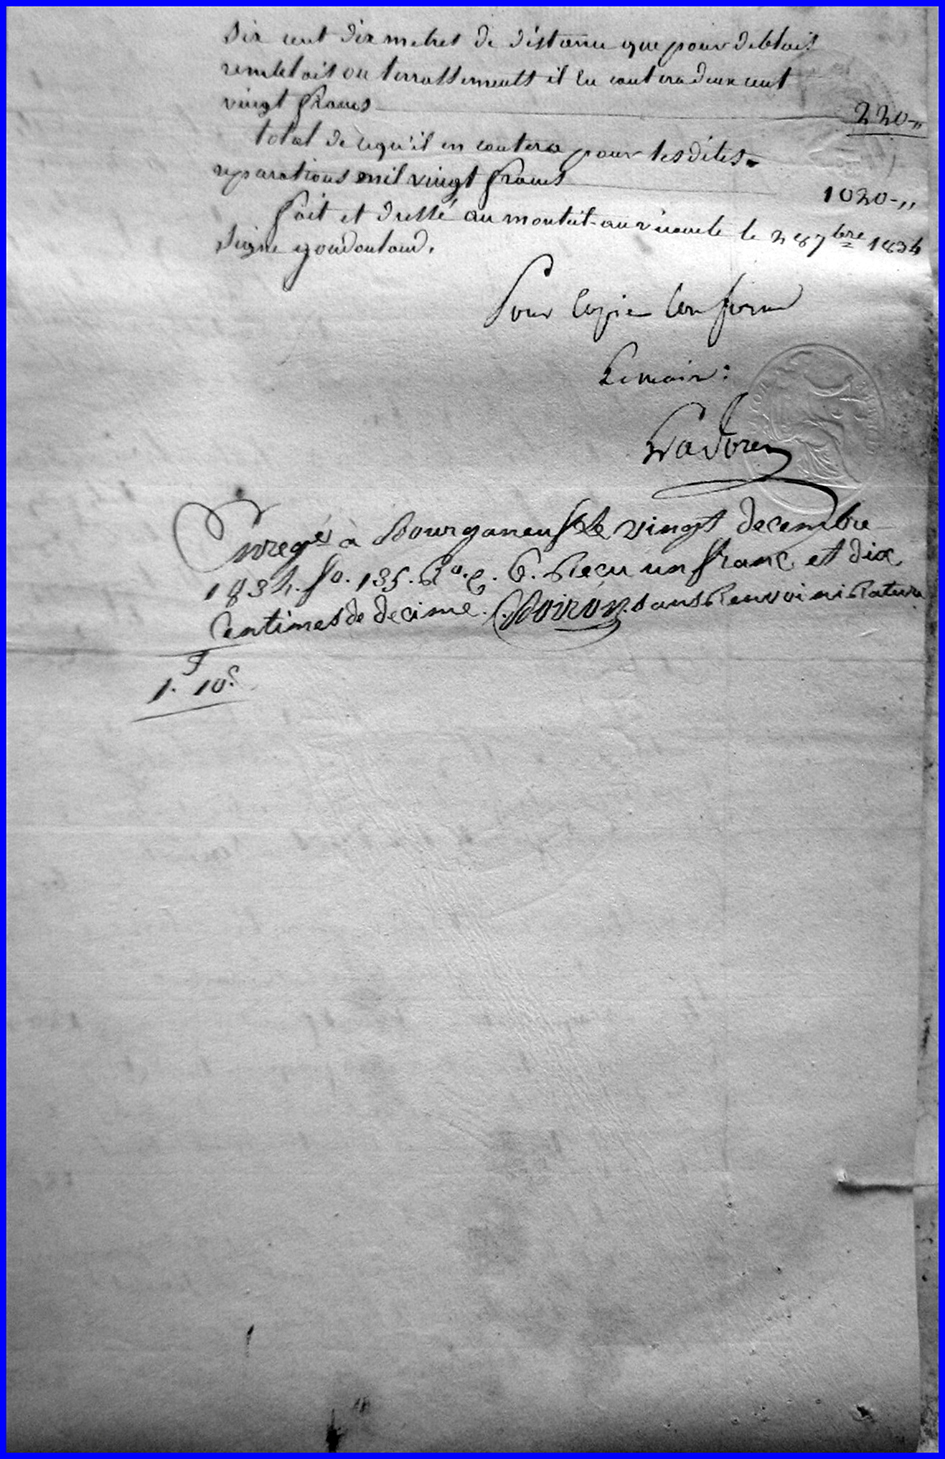 six cent dix metres de distance que pour deblais
remblais ou terrassements il en coutera deux cent
vingt francs 220-,,
total de ce qu'il en coutera pour les dites
reparations mil vingt francs 1020-,,
fait et dressé au montéil-au-vicomte le 28 7bre 1834
signé
Pour Copie Conforme
Le maire:
Enregé à Bourganeuf le vingt decembre
1834. fo. 135. Ro. C. 6. Recu un franc et dix
Centimes de decime. Noiron sans Renvoi ni Rature
1.f 10c